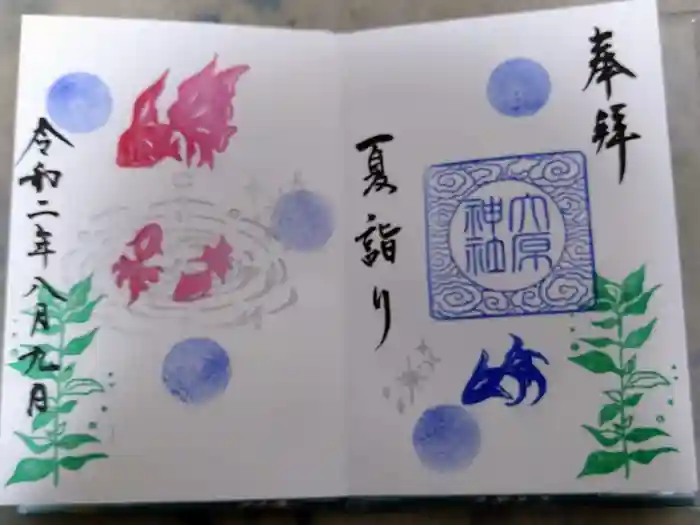 奉拝
大原
神社
夏詣り
令和二年八月九日